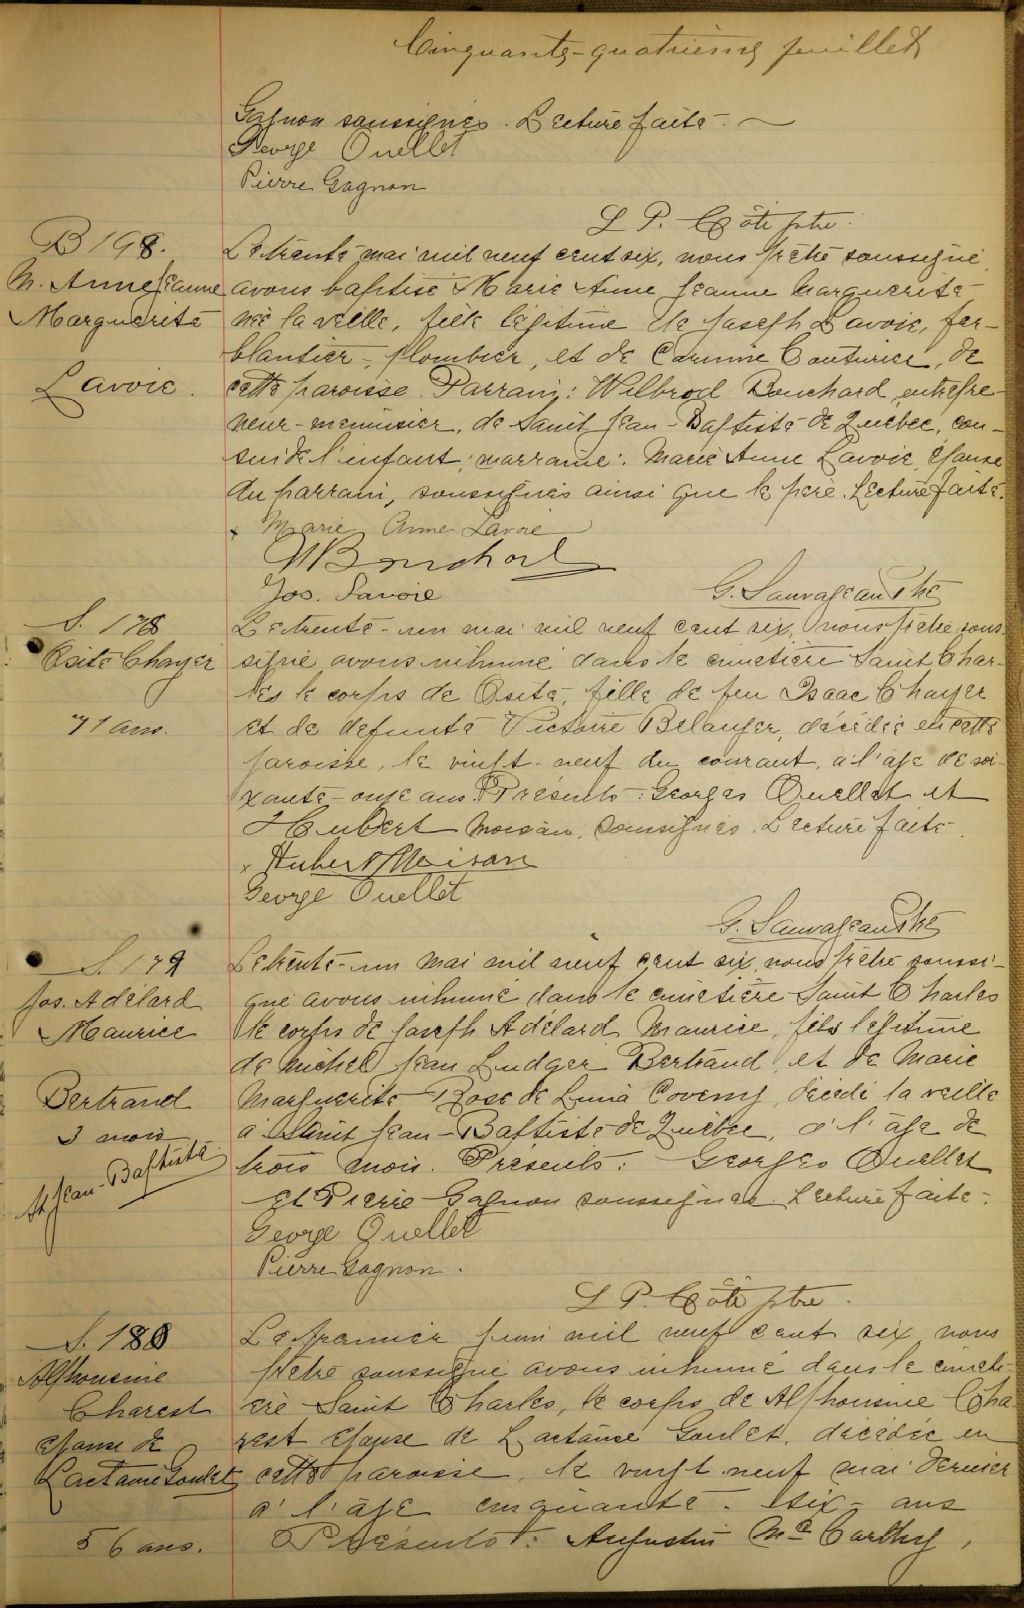 Cinquante-quatrième feuillet
Gagnon soussignés. Lecture faite.
George Ouellet
Pierre Gagnon
L P. Côté ptre.
B 198.
M. Anne Jeanne
Marguerite
Lavoie.
Le trente mai mil neuf cent six, nous prêtre soussigné
avons baptisé Marie Anne Jeanne Marguerite
née la veille, fille légitime de Joseph Lavoie, fer-
blantier, plombier, et de Corinne Couturier, de
cette paroisse. Parrain: Wilbrod Bouchard, entrepre-
neur-menuisier, de Saint Jean-Baptiste de Québec, cou-
sin de l'enfant; marraine: Marie Anne Lavoie, épouse
du parrain, soussignés ainsi que le père. Lecture faite.
Marie Anne Lavoie
W Bouchard
Jos. Lavoie
G. Sauvageau Ptre
S. 178
Osite Chayer
71 ans.
Le trente-un mai mil neuf cent six, nous prêtre sous-
signé avons inhumé dans le cimetière Saint Char-
les le corps de Osite, fille de feu Isaac Chayer
et de defunte Victoire Belanger, décédée en cette
paroisse, le vingt-neuf du courant, à l'âge de soi-
xante-onze ans. Présents: Georges Ouellet et
Hubert Moisan, soussignés. Lecture faite.
Hubert Moisan
George Ouellet
G. Sauvageau Ptre
S. 179
Jos. Adélard
Maurice
Bertrand
3 mois
St Jean-Baptiste
Le trente-un mai mil neuf cent six, nous prêtre soussi-
gné avons inhumé dans le cimetière Saint Charles
le corps de Joseph Adélard Maurice, fils légitime
de Michel Jean Ludger Bertrand et de Marie
Marguerite Rose de Lima Coveny, décédé la veille
à Saint Jean-Baptiste de Québec, à l'âge de
trois mois. Présents: Georges Ouellet
et Pierre Gagnon soussignés. Lecture faite.
George Ouellet
Pierre Gagnon.
L P. Côté ptre.
S. 180
Alphonsine
Charest
épouse de
Lactance Goulet
56 ans.
Le premier juin mil neuf cent six nous
prêtre soussigné avons inhumé dans le cimeti-
ère Saint Charles, le corps de Alphonsine Cha
rest épouse de Lactance Goulet, décédée en
cette paroisse, le vingt-neuf mai dernier
à l'âge cinquante-six-ans
Présents: Augustin Mc Carthy,